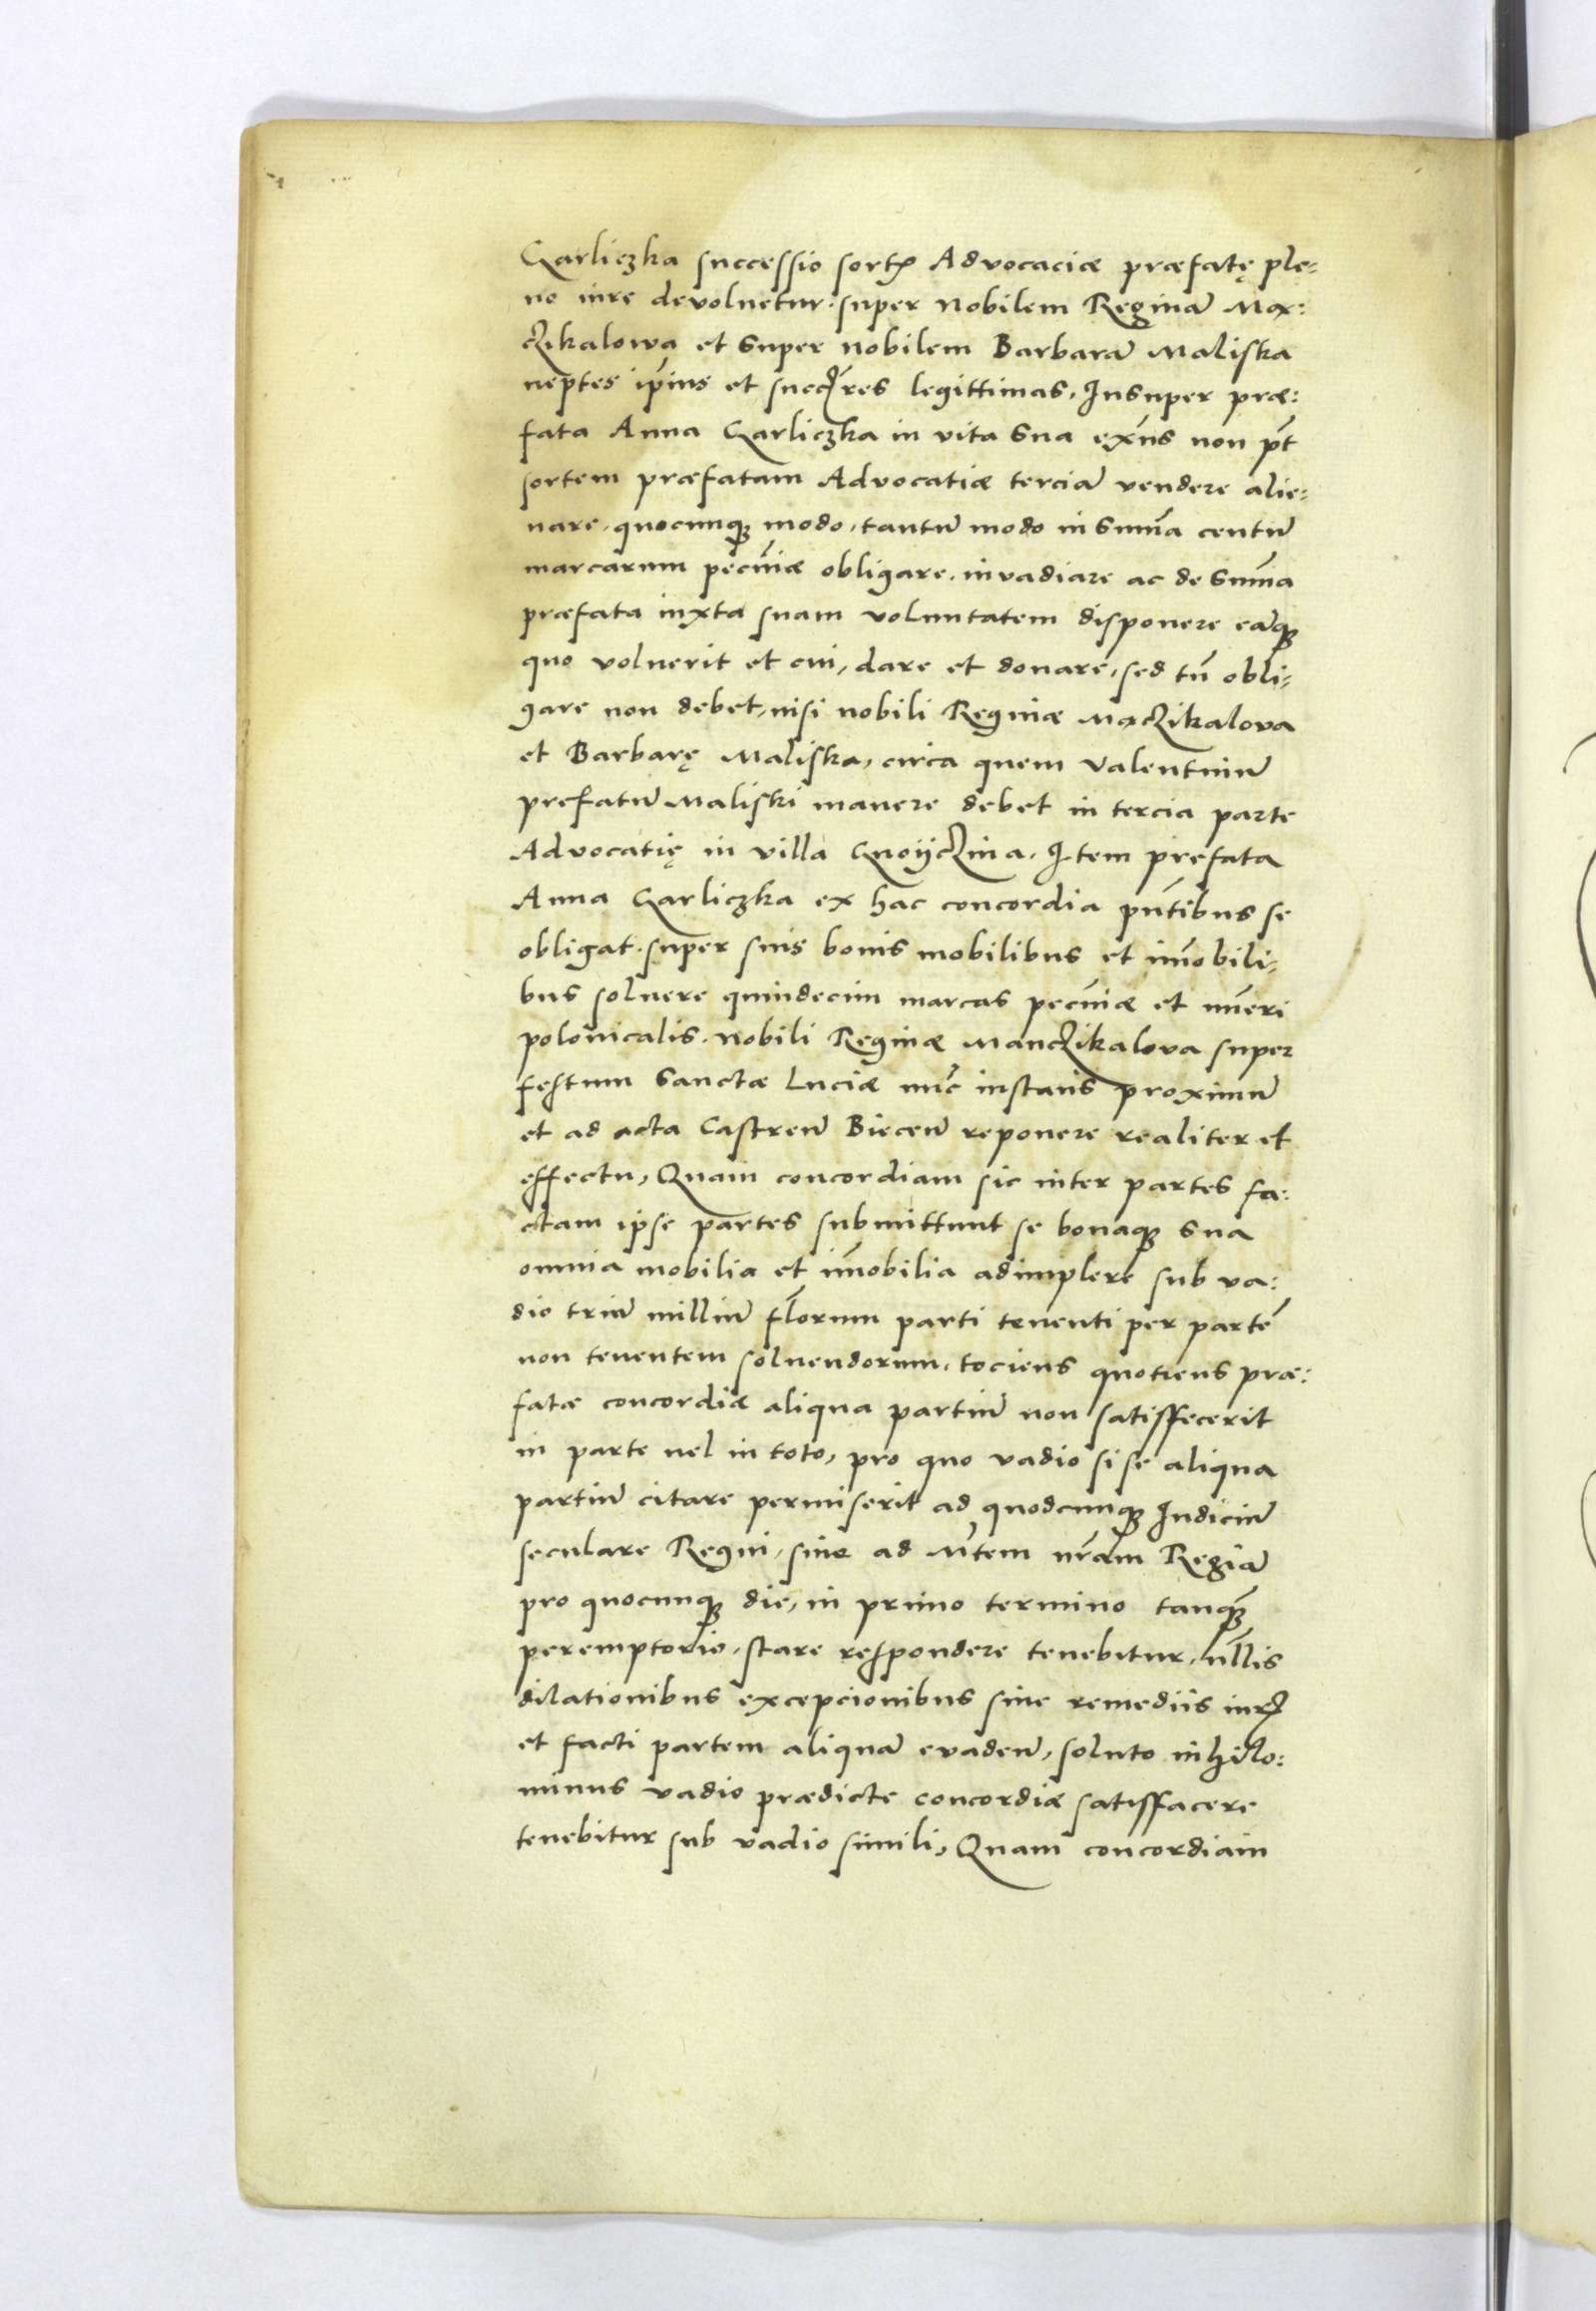 Garliczka successio sortꝭ Advocaciæ præfatę ple⸗
no iure devoluetur. super Nobilem Reginā Mą⸗
czikalowa et super nobilem Barbarā Maliska
neptes ip̄ius et succ̄res legittimas. Insuper præ⸗
fata Anna Garliczka in vita sua ex̄ns non pt̄
sortem præfatam Advocatiæ terciā vendere alie⸗
nare. quocunqꝫ modo, tantū modo in sum̄a centū
marcarum pecūiæ obligare. invadiare ac de sum̄a
præfata iuxta suam voluntatem disponere eāqꝫ
quo voluerit et cui, dare et donare, sed tn̄ obli⸗
gare non debet, nisi nobili Reginæ Mączikalova
et Barbarę Maliska, circa quem Valentinū
prefatū Maliski manere debet in tercia parte
Advocatię in villa Gnoÿczina. Item prefata
Anna Garliczka ex hac concordia pn̄tibus se
obligat. super suis bonis mobilibus et im̄obili⸗
bus soluere quindecim marcas pecūiæ et nūeri
polonicalis. Nobili Reginæ Manczikalova super
festum Sanctæ Luciæ nūc instaīs proximū
et ad acta Castreū Bieceū reponere realiter et
effectu, Quam concordiam sic inter partes fa⸗
ctam ipse partes submittunt se bonaqꝫ sua
omnia mobilia et im̄obilia adimplere sub va⸗
dio triū milliū fl̄orum parti tenenti per partē
non tenentem soluendorum. tociens quotiens præ⸗
fatæ concordiæ aliqua partiū non satisfecerit
in parte uel in toto, pro quo vadio si se aliqua
partiū citare permiserit ad quodcunqꝫ Iudiciū
seculare Regni, siue ad Mt̄em nr̄am Regiā
pro quocunqꝫ die, in primo termino tanqꝫ̄
peremptorie, stare respondere tenebitur, ul̄lis
dilationibus excepcionibus siue remediis iurꝭ
et facti partem aliquā evadeū, soluto nihilo⸗
minus vadio prædicte concordiæ satisfacere
tenebitur sub vadio simili, Quam concordiam